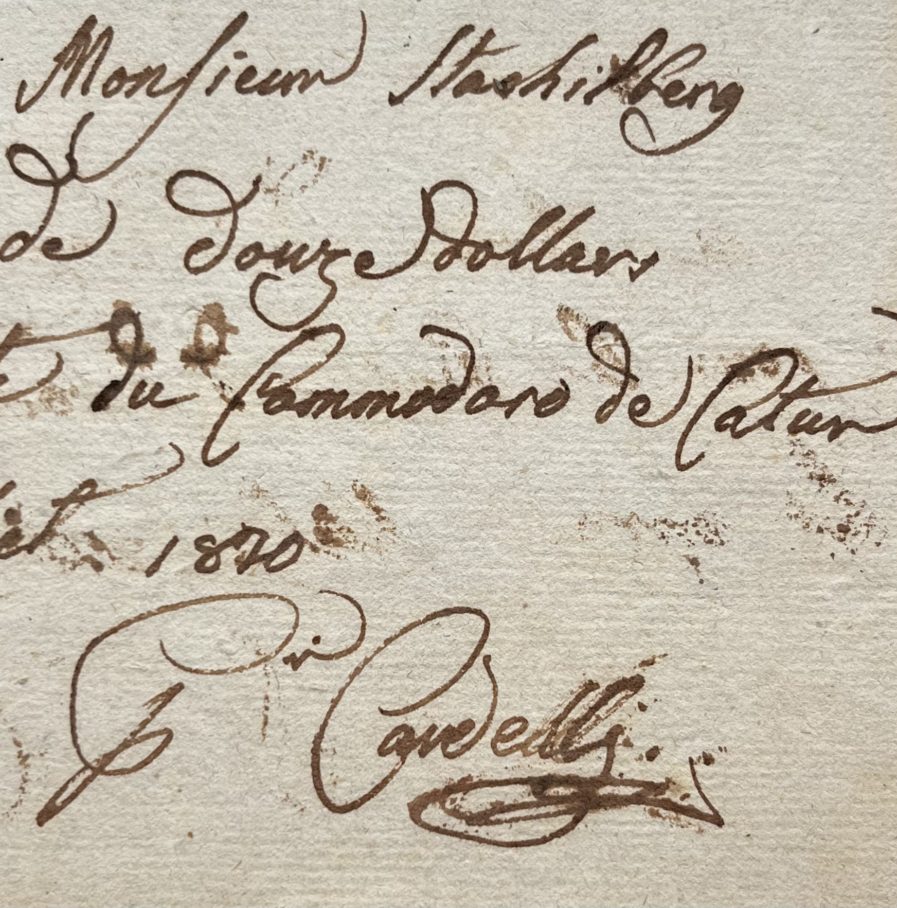 Monsieur Stashilberg
de douze dollars
du Commodore de Catur
1820
Pr Cardelli.